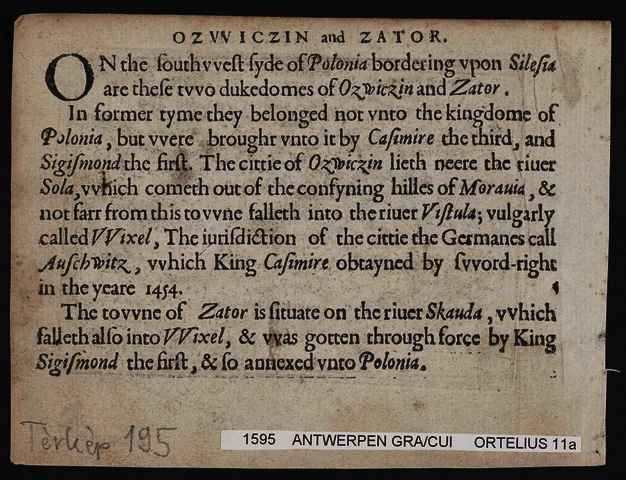 OZVVICZIN and ZATOR.
ON the southvvest syde of Polonia bordering vpon Silesia
are these tvvo dukedomes of Ozwiczin and Zator.
In former tyme they belonged not vnto the kingdome of
Polonia, but vvere brought vnto it by Casimire the third, and
Sigismond the first. The cittie of Ozwiczin lieth neere the riuer
Sola, vvhich cometh out of the confyning hilles of Morauia, &
not farr from this tovvne falleth into the riuer Vistula; vulgarly
called VVixel, The iurisdiction of the cittie the Germanes call
Auschwitz, vvhich King Casimire obtayned by svvord-right
in the yeare 1454.
The tovvne of Zator is situate on the riuer Skauda, vvhich
falleth also into VVixel, & vvas gotten through force by King
Sigismond the first, & so annexed vnto Polonia.
Térkép 195
1595 ANTWERPEN GRA/CUI ORTELIUS 11a